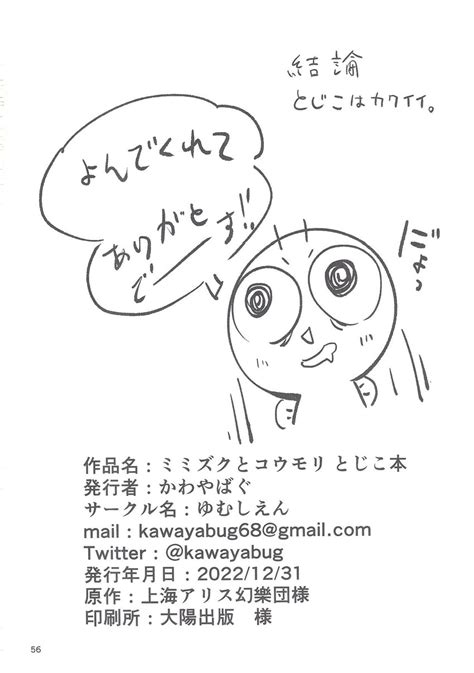 結論
とじこはカワイイ。
よんでくれて
ありがと
でーす!!
にょっ
作品名：ミミズクとコウモリ とじこ本
発行者：かわやばぐ
サークル名：ゆむしえん
mail：kawayabug68@gmail.com
Twitter：@kawayabug
発行年月日：2022/12/31
原作：上海アリス幻樂団様
印刷所：大陽出版　様
56